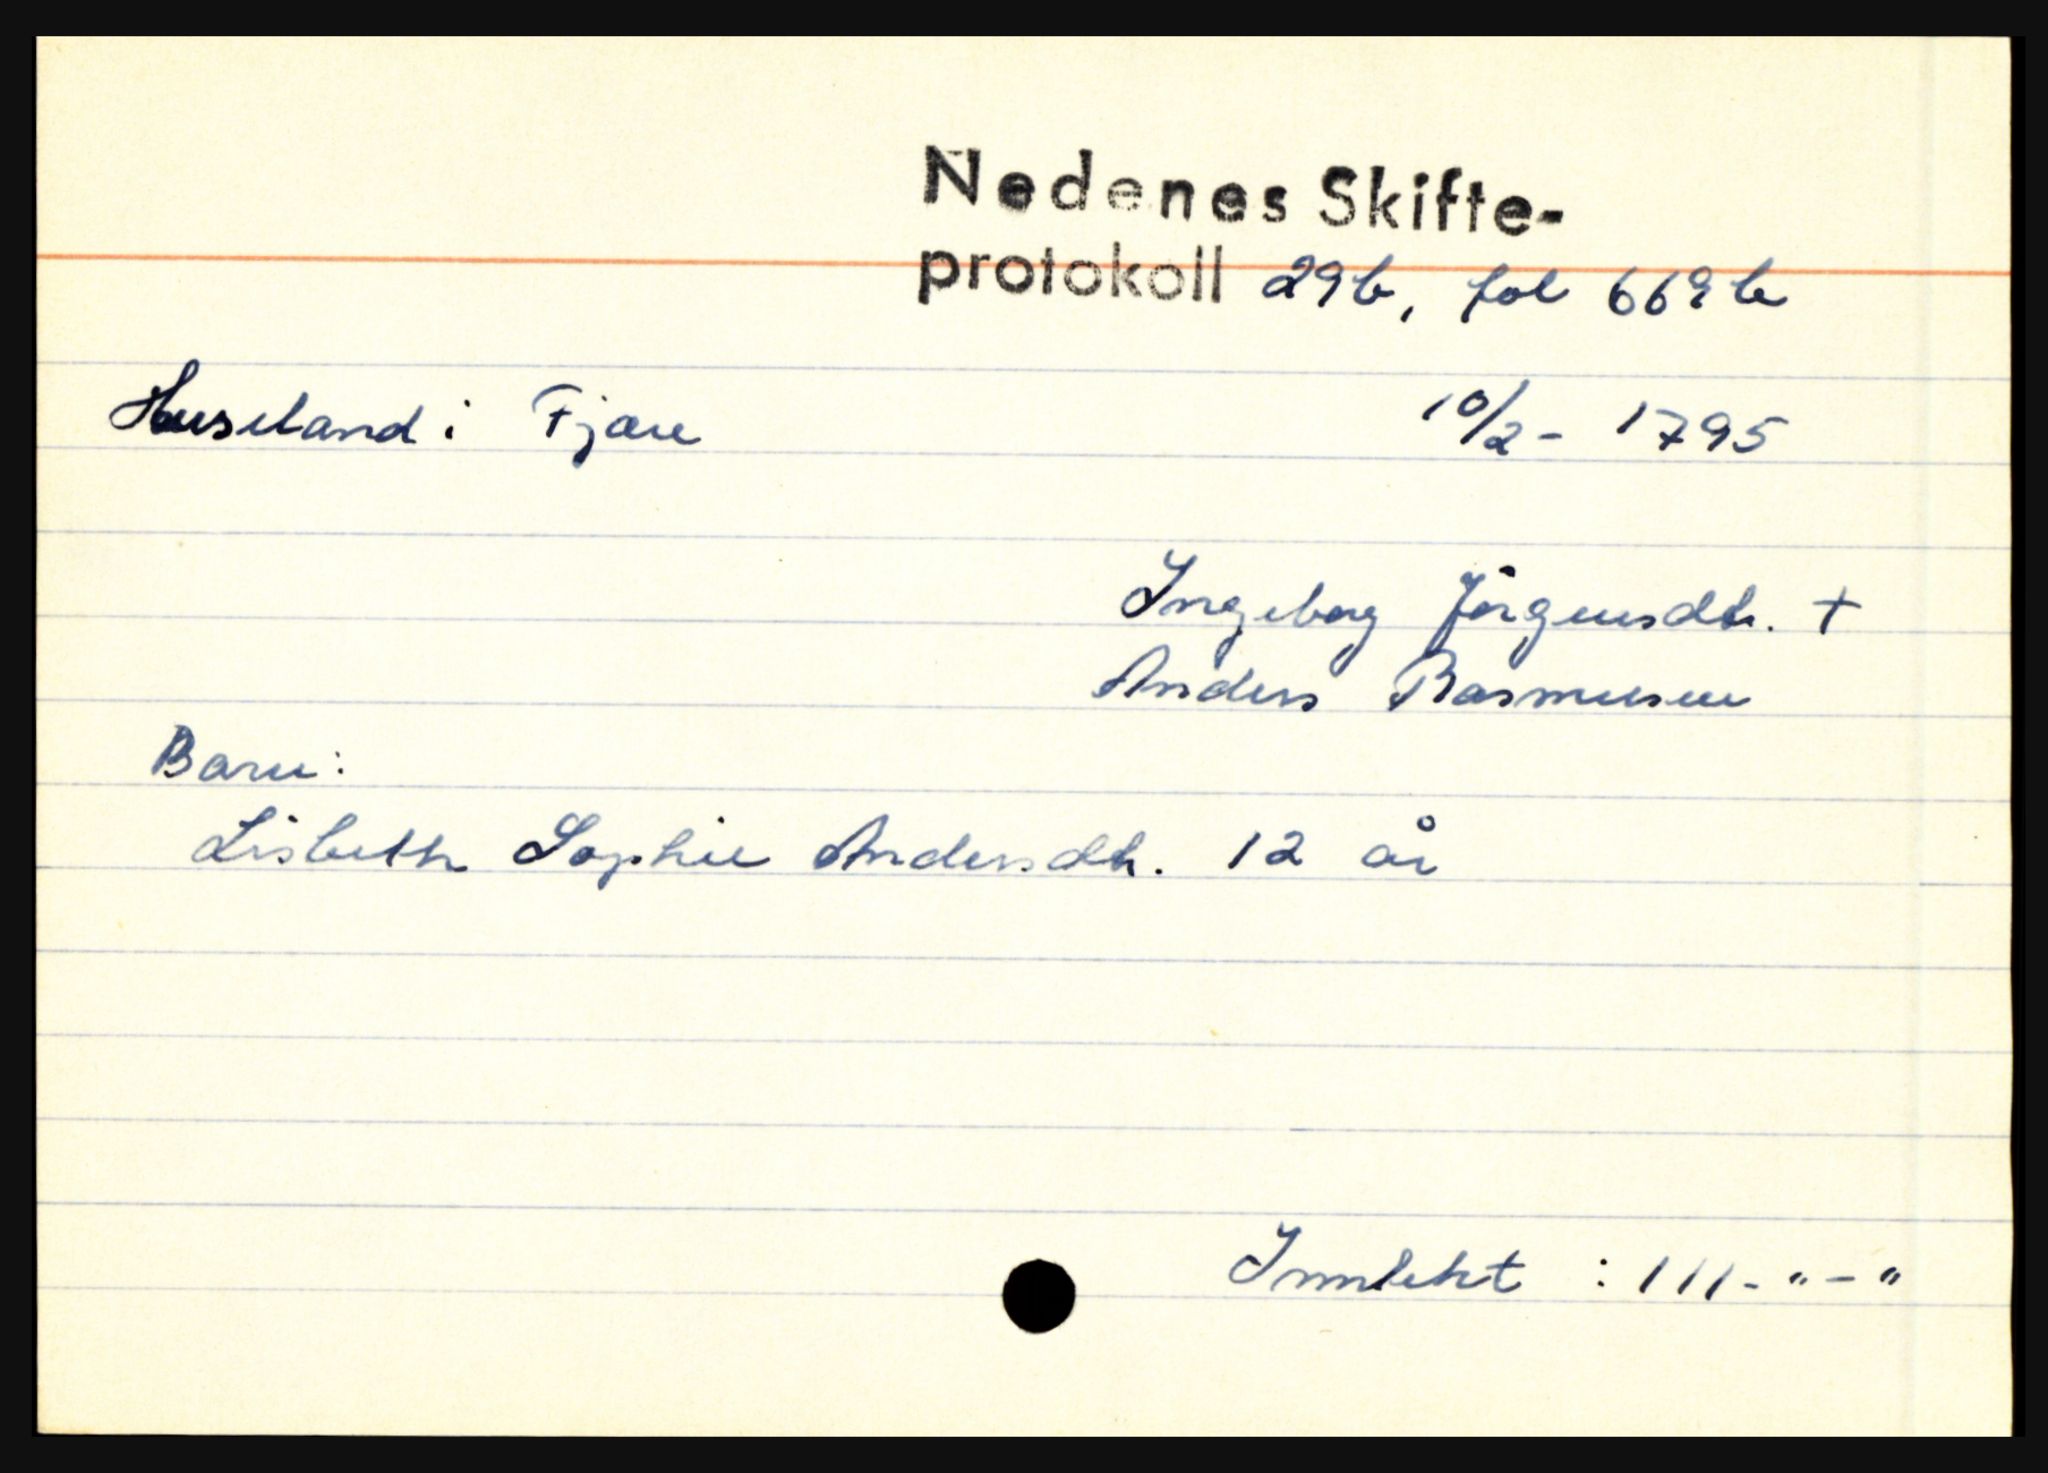 Nedenes Skifte-
protokoll 29b, fol 669b
Huseland i Fjære 10/2 - 1795
Ingeborg Jörgensdtr. +
Anders Rasmusen
Barn:
Lisbeth Sophie Andersdtr. 12 år
Inntekt : 111 - " - "